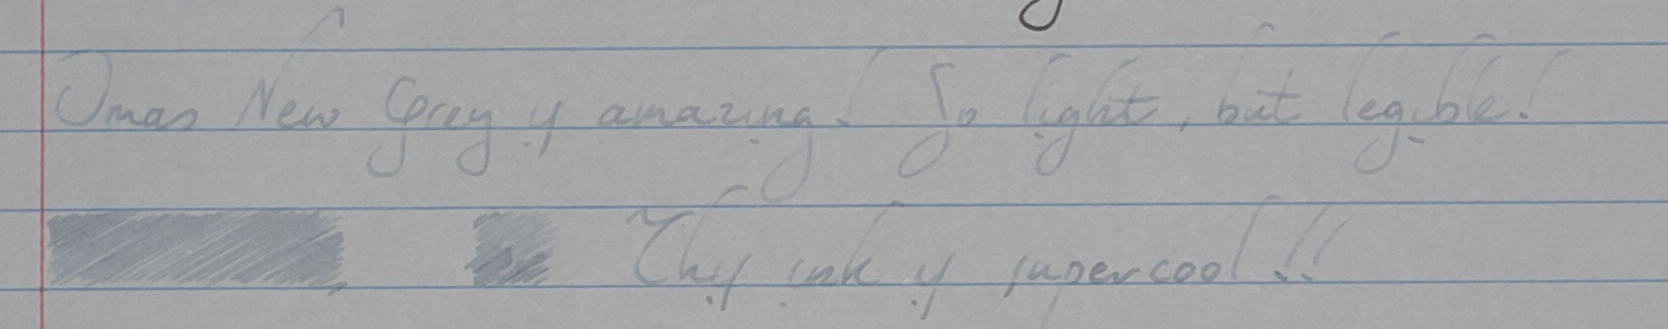 Omas New Grey is amazing! So light, but legible!
This ink is supercool!!